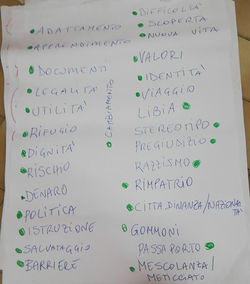 ADATTAMENTO
APPRENDIMENTO
DOCUMENTI
LEGALITA'
UTILITA'
RIFUGIO
DIGNITA'
RISCHIO
DENARO
POLITICA
ISTRUZIONE
SALVATAGGIO
BARRIERE
CAMBIAMENTO
DIFFICOLTA'
SCOPERTA
NUOVA VITA
VALORI
IDENTITA'
VIAGGIO
LIBIA
STEREOTIPO
PREGIUDIZIO
RAZZISMO
RIMPATRIO
CITTADINANZA/NAZIONALI
TA'
GOMMONI
PASSAPORTO
MESCOLANZA/
METICCIATO